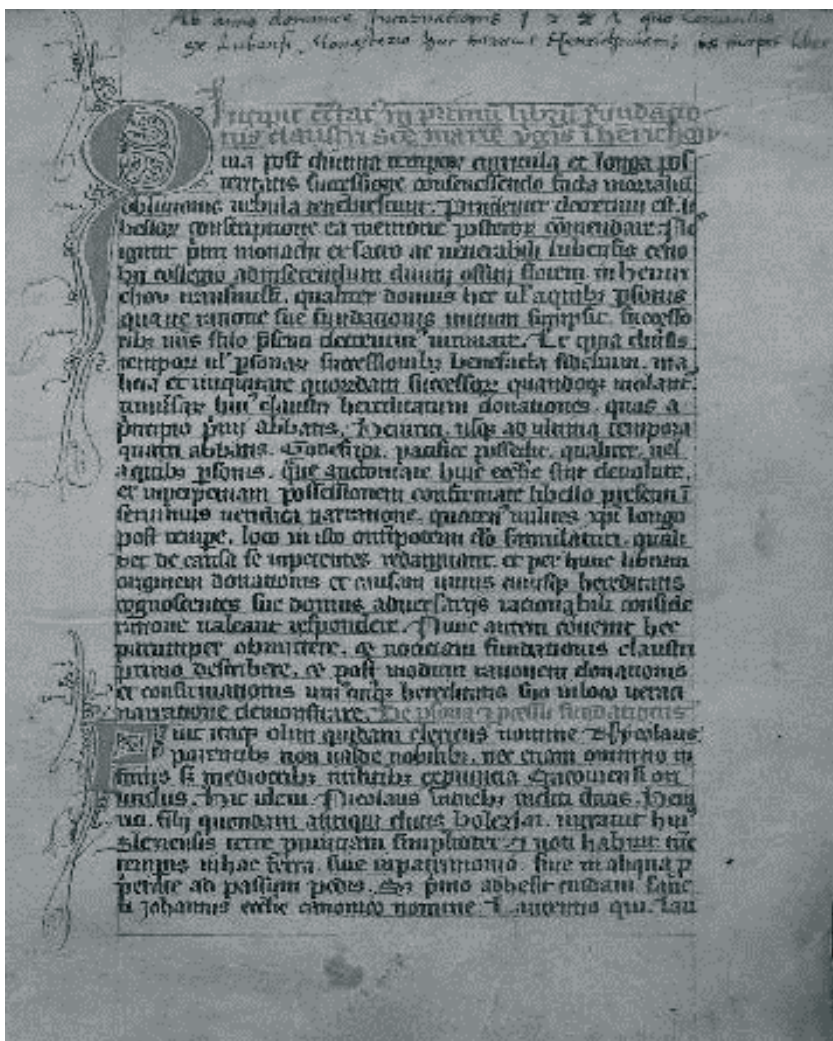 Ab anno dominice Incarnationis 1 2 2 quo Conventus
ex Lubensi Monasterio huc Henrichow
Incipit t̅ctat' in primū librū fundatio
nis claustri sc̅e marie v̓gis i henrichow
Quia post diutina tempor curricula et longa pos
teritatis successione consenescendo facta mortaliū
oblivionis nebula tenebrescunt. Prudenter decretum est. li
bellor conscriptione ea memorie posteror cōmendare. No
igitur prim monachi et sacro ac venerabili lubensis ceno
bij collegio ad inserendum divini officij florem in henri
chow transmissi. qualiter domus hec ul' a quibȝ p̱sonis
qua ue ratione sue fundationis initium sumpsit. successo
ribȝ nr̅is stilo p̱senti decrevim' intimare. Et quia diu̓sis
tempor ul' p̱sonar successionibȝ benefacta fidelium. ma
licia et iniquitate quordam successor quandoqȝ violant̓.
univ̓sar hui' claustri hereditatum donationes. quas a
principio primi abbatis. Henrici. usqȝ ad ultima tempora
quarti abbatis. Godefridi. pacifice possedit. qualiter. vel
a quibȝ p̱sonis. que auctoritate huic eccl̅ie sint devolute.
et in perpetuam possessionem confirmate libello presenti ī
seruimus veridica narratione. quaten' milites xp̅i longo
post tempe̱. loco in isto omnipotenti do̅ famulaturi. quali
bet de causa se inpetentes redarguant. et per hunc librum
originem donationis et causam unius cuiusqȝ hereditatis
cognoscentes sue domus adversarijs rationabili conside
ratione valeant respondere. Nunc autem cōvenit hec
parumper obmittere. et noticiam fundationis claustri
primo describere. et post modum rationem donationis
et confirmationis uni' cuiqȝ hereditatis suo in loco veraci
narratione demonstrare. De p̱sona et p̱cessu fundationis
Fuit itaqȝ olim quidam clericus nomine Nycolaus
parentibȝ non valde nobilibȝ. nec etiam omnino in
fimis sȝ mediocribȝ militibȝ ex p̱vincia Cracoviensi ori
undus. Hic idem Nicolaus in diebȝ incliti ducis. Hen
rici. filij quondam antiqui ducis Bolezlai. intravit hui'
Slezensis terre p̱vinciam simplicit̓. et non habuit tūc
tempis in hac terra. sive in patrimonio. sive in aliqua p
p̱etate ad passum pedis. Sȝ primo adhesit cuidam sanc
ti Johannis eccl̅ie canonico nomine Laurentio qui. Lau